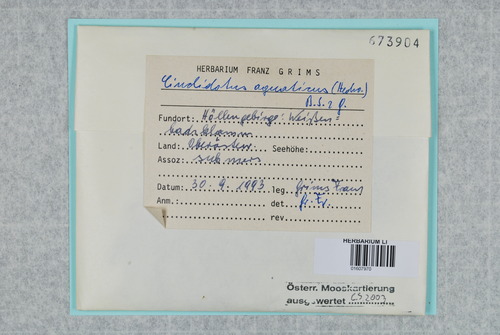 673904
HERBARIUM FRANZ GRIMS
Cinclidotus aquaticus (Hedw.)
B.S.&G.
Fundort: Höllengebirge: Weißen=
bachklamm
Land: Oberösterr. Seehöhe:
Assoz: submers
Datum: 30. 9. 1993 leg. Grims Franz
Anm.: det. Gr. Fr.
rev.
HERBARIUM LI
Österr. Mooskartierung
ausgewertet CS 2003